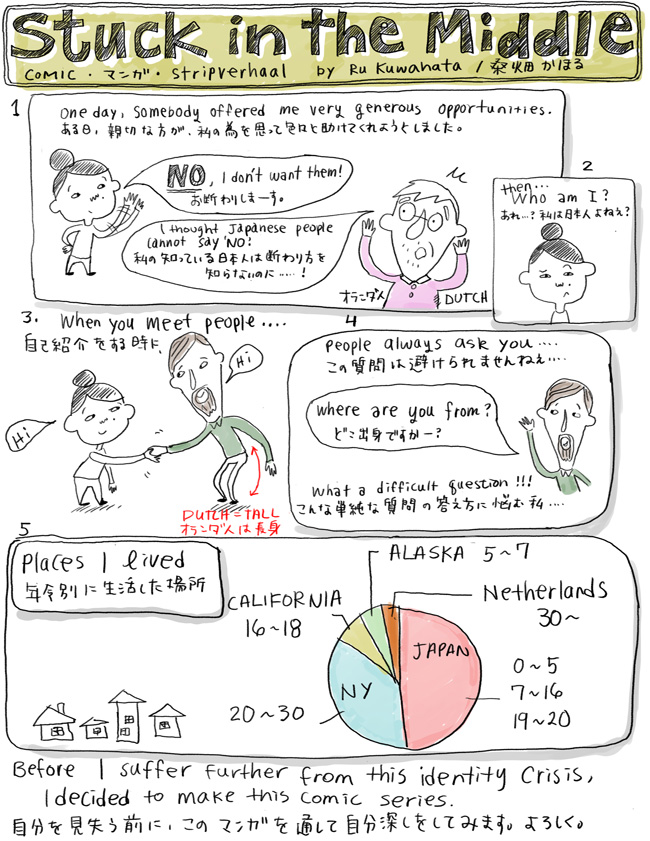 Stuck in the Middle
COMIC・マンガ・Stripverhaal by Ru Kuwahata / 桑畑かほる
1
One day, somebody offered me very generous opportunities.
ある日、親切な方が、私の為を思って色々と助けてくれようとしました。
NO, I don't want them!
お断わりしまーす。
I thought Japanese people
cannot say "NO"!
私の知っている日本人は断わり方を
知らないのに……!
オランダ人
DUTCH
2
then...
Who am I?
あれ…?私は日本人よねぇ?
3. When you meet people....
自己紹介をする時に
Hi
Hi
DUTCH = TALL
オランダ人は長身
4
People always ask you....
この質問は避けられませんねぇ…
Where are you from?
どこ出身ですかー?
What a difficult question!!!
こんな単純な質問の答え方に悩む私…
5
Places I lived
年令別に生活した場所
ALASKA 5~7
Netherlands
30~
CALIFORNIA
16~18
JAPAN
0~5
7~16
19~20
NY
20~30
Before I suffer further from this identity crisis,
I decided to make this comic series.
自分を見失う前に、このマンガを通して自分探しをしてみます。よろしく。